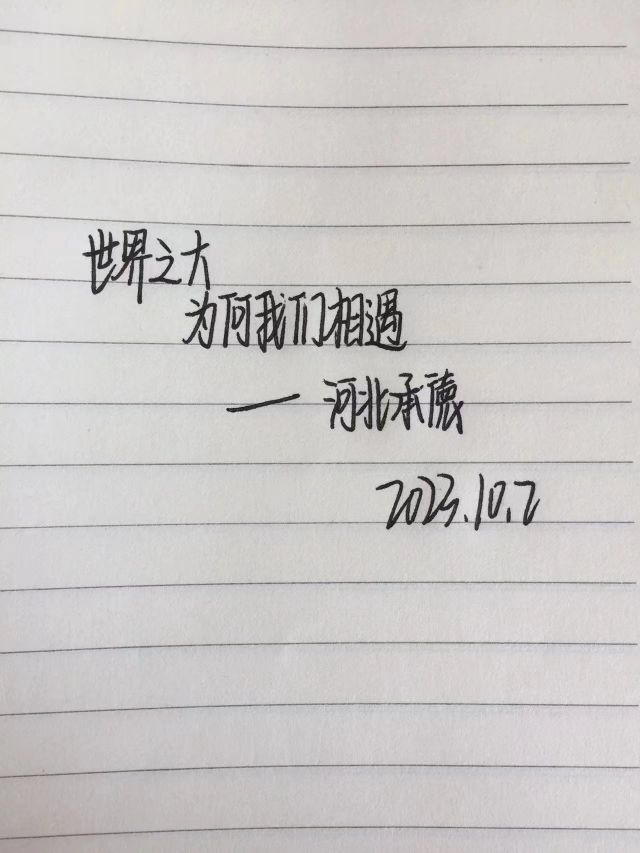 世界之大
为何我们相遇
— 河北承德
2023.10.2